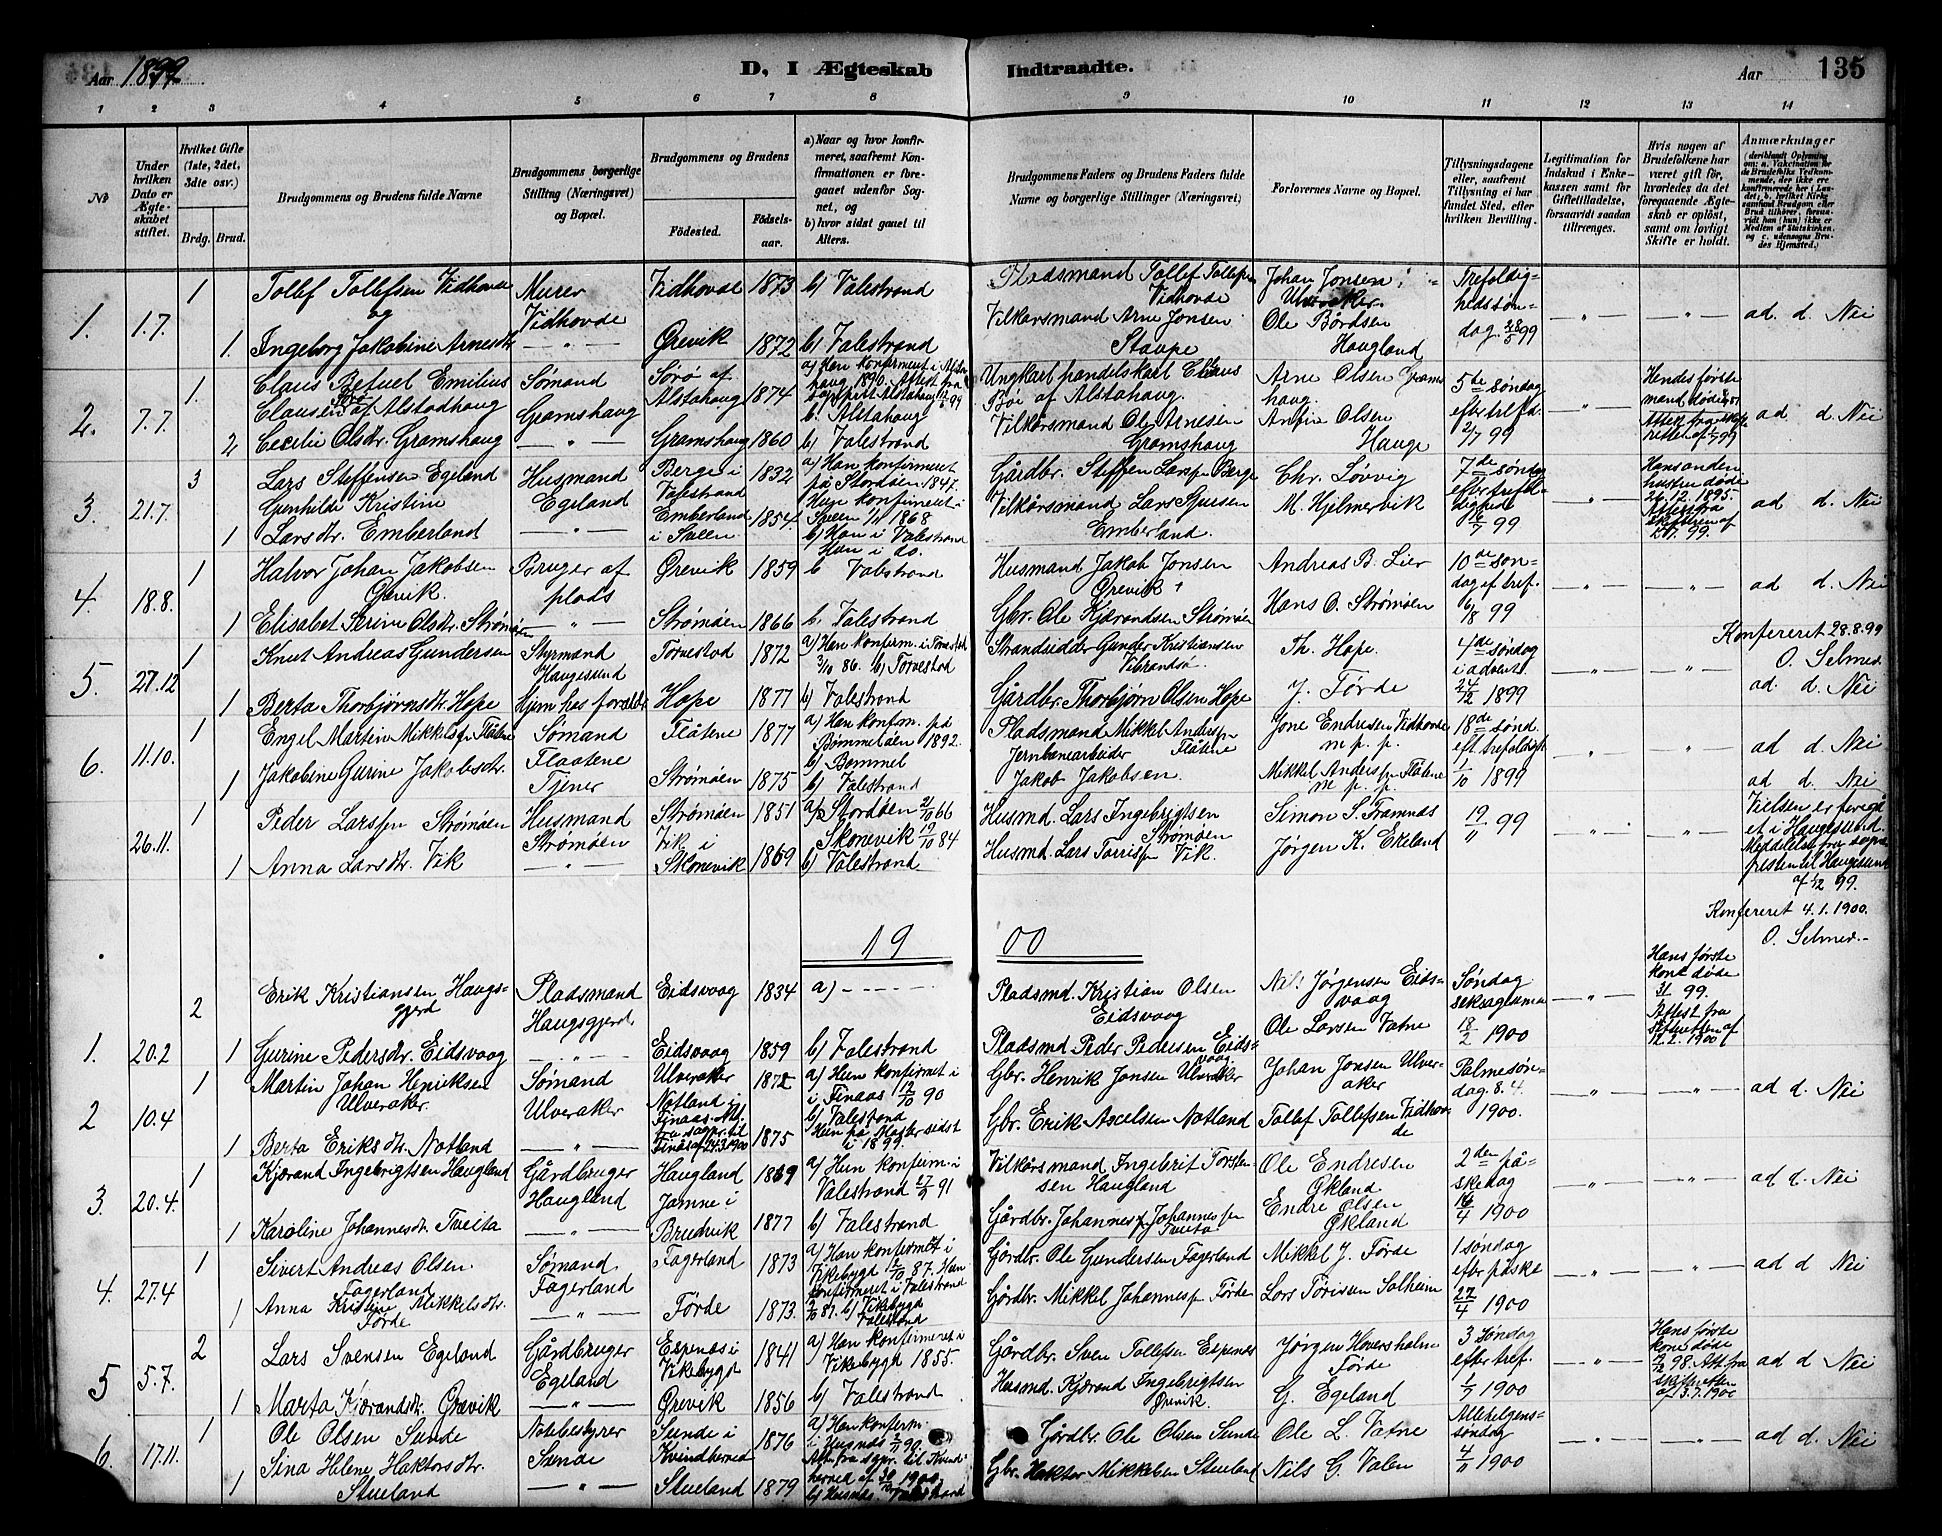 Aar 1899 D, I Ægteskab Indtraadte. Aar 135
1 2 3 4 5 6 7 8 9 10 11 12 13 14
No
Under hvilken Dato er Ægteskabet stiftet.
Hvilket Gifte (1ste, 2det, 3die osv.)
Brdg. Brud.
Brudgommens og Brudens fulde Navne
Brudgommens borgerlige Stilling (Næringsvei) og Bopæl.
Brudgommens og Brudens
Fødested. Fødselsaar.
a) Naar og hvor konfirmeret, saafremt Konfirmationen er foregaaet udenfor Sognet, og
b) hvor sidst gaaet til Alters.
Brudgommens Faders og Brudens Faders fulde Navne og borgerlige Stillinger (Næringsvei)
Forlovernes Navne og Bopæl.
Tillysningsdagene eller, saafremt Tillysning ei har fundet Sted, efter hvilken Bevilling.
Legitimation for Indskud i Enkekassen samt for Giftetilladelse, forsaavidt saadan tiltrænges.
Hvis nogen af Brudefolkene har været gift før, hvorledes da det foregaaende Ægteskab er opløst, samt om lovligt Skifte er holdt.
Anmærkninger
1. 1.7. 1 Tollef Tollefsen Vidhovde og Murer Vidhovde Vidhovde 1873 b) Valestrand Pladsmand Tollef Tollefsen Vidhovde Johan Jonsen Ulveraker Trefoldighedssøndag 28/5 99 ad. d. Nei
1. Ingeborg Jakobine Arnesdtr. Ørevik 1872 b) Valestrand Vilkårsmand Arne Jonsen Staupe Ole Bårdsen Haugland
2. 7.7. 1. Claus Betuel Emilius Clausen af Alstadhaug Sømand Gramshaug Sørø af Alstahaug 1874 b. Alstahaug Ungkarl handelskarl Claus Boe af Alstahaug. Arne Olsen Gramshaug. 5de søndag efter trefd. 2/7 99 Hendes første mand døde ad d. Nei
2 Cecilie Olsdtr. Gramshaug Gramshaug 1860 b) Valestrand Vilkårsmand Ole Arnesen Gramshaug Anfin Olsen Hauge
3. 21.7. 3 Lars Steffensen Egeland Husmand Egeland Berge i Valestrand 1832 a) Han konfirmeret på Stordøen 1847. Gårdbr. Steffen Larssen Berge Chr. Løvvig 7de søndag efter trefoldighed 99 Hans anden hustru døde 26.12.1895. Attest fra skifteretten af 99. ad d. Nei
1 Gunhilde Kristine Larsdtr. Emberland Emberland i Sveen 1854 Hun konfirmeret i Sveen 1868 b) Han i Valestrand Hun i do. Vilkårsmand Lars Emberland M. Hjelmervik
4. 18.8. 1 Halvor Johan Jakobsen Ørevik. Bruger af plads Ørevik 1859 b Valestrand Husmand Jakob Jonsen Ørevik Andreas B. Lier 10de søndag ef tref. 6/8 99 ad d. Nei
1 Elisabet Serine Olsdtr. Strømøen Strømøen 1866 b. Valestrand Gbr. Ole Kjærandsen Strømøen Hans O. Strømøen
Konfereret 28.8.99
O. Selmer.
5. 27.12 1 Knut Andreas Gundersen Styrmand Haugesund Tornestad 1872 a) Han konfirm. i Tornestad 3/10 86. b) Tornestad Strandsidder Gunder Kristiansen Vibrandsø. Th. Hope. 4de søndag i advent 24/12 1899 ad. d. Nei
1 Berta Thorbjørnsdtr. Hope Hjem hos foreldre Hope 1877 b) Valestrand Gårdbr. Thorbjørn Olsen Hope J. Førde
6. 11.10. 1 Engel Martin Mikkelsen Flåtene Sømand Flaatene Flåtene 1877 a) Han konfirm. på Bømmeløen 1892. b) Bømmel Pladsmand Mikkel Anderssen Flåtene Jone Endresen Vidhovde m. p. p. 18de sønd. eft. trefoldigh. 1/10 1899 ad d. Nei
1 Jakobine Gurine Jakobsdtr. Tjener Strømøen 1875 b) Valestrand Jernbanearbeider Jakob Jakobsen. Mikkel Anderssen Flåtene m. p. p. ad d. Nei
26.11. 1 Peder Larssen Strømøen Husmand Strømøen Strømøen 1851 a) Stordøen 21/10 66 Husmd. Lars Ingebrigtsen Strømøen Simon S. Framnæs 19/11 99 Vielsen er foregået i Haugesund. Meddelelse fra sogne presten til Haugesund af 1/12 99.
1 Anna Larsdtr. Vik Vik i Skonevik 1869 Skonevik 19/10 84 b) Valestrand Husmd. Lars Torrissen Vik. Jørgen K. Ekeland
Konfereret 4.1.1900.
O. Selmer.
1900
1. 20.2 2 Erik Kristiansen Haugsgjerd Pladsmand Haugsgjerd Eidsvaag 1834 a) Pladsmd. Kristian Olsen Eidsvaag Nils Jørgensen Eidsvaag Søndag seksagesima 18/2 1900 Hans første kone døde 99. Attest fra skifteretten af 12.2.1900
1 Gurine Pedersdtr. Eidsvaag Eidsvaag 1859 b) Valestrand Pladsmd. Peder Pedersen Eidsvaag Ole Larsen Vatne
2 10.4 1 Martin Johan Henriksen Ulveraker. Sømand Ulveraker Ulveraker 1872 a) Hun konfirmeret i Finaas 12/10 90 Gbr. Henrik Jonsen Ulveraker Johan Jonsen Ulveraker Palmesøndag 8.4 1900. ad d. Nei
1 Berta Eriksdtr. Notland Notland i Finaas. 1875 b) Valestrand Hun på Moster sidst i 1899. Gbr. Erik Axelsen Notland Tollef Tollefsen Vidhovde
3. 20.4. 1 Kjærand Ingebrigtsen Haugland Gårdbruger Haugland Haugland 1869 a) Hun konfirm. i Valestrand 27/9 91 Vilkårsmand Ingebrit Torstensen Haugland Ole Endresen Økland 2den påskedag 16/4 1900 ad d. Nei
1 Karoline Johannesdtr. Tveita Jamne i Brudvik 1877 b) Valestrand Gårdbr. Johannes Johannessen Tveita Endre Olsen Økland
4. 27.4 1 Sivert Andreas Olsen Fagerland Sømand Fagerland Fagerland 1873 a) Han konfirmeret i Vikebygd 2/10 87. Hun konfirmeret i Valestrand Gårdbr. Ole Gundersen Fagerland Mikkel J. Førde 1 søndag efter påske 22/4 1900 ad d Nei
1 Anna Kristine Mikkelsdtr. Førde Førde 1873. 87. b) Vikebygd Valestrand Gårdbr. Mikkel Johannessen Førde Lars Tørisen Solheim
5 5.7. 2 Lars Svensen Egeland Gårdbruger Egeland Espenæs i Vikebygd 1841 a) Han konfirmeret i Vikebygd 1855. Gårdbr. Sven Tollefsen Espenæs Jørgen Hovershølm Førde 3 søndag efter tref. 1/7 1900 Hans første kone døde 98. Att. fra skifteretten af 3.7.1900 ad d Nei
1 Marta Kjærandsdtr. Ørevik Ørevik 1856 b) Valestrand Husmd. Kjærand Ingebrigtsen Ørevik. G. Egeland
6. 17.11. 1 Ole Olsen Sunde Notebestyrer Sunde Sunde i Kvindherred 1876 a) Han konfirm. i Husnæs 90. Gårdbr. Ole Olsen Sunde Ole L. Vatne Allehelgenssøndag 4/11 1900 ad d. Nei
1 Sina Helene Haktorsdtr. Stueland Stueland 1879 Att. fra sgpr. til Kvindherred af 30/10 1900. b) Husnæs. Valestrand Gbr. Haktor Mikkelsen Stueland Nils G. Valen